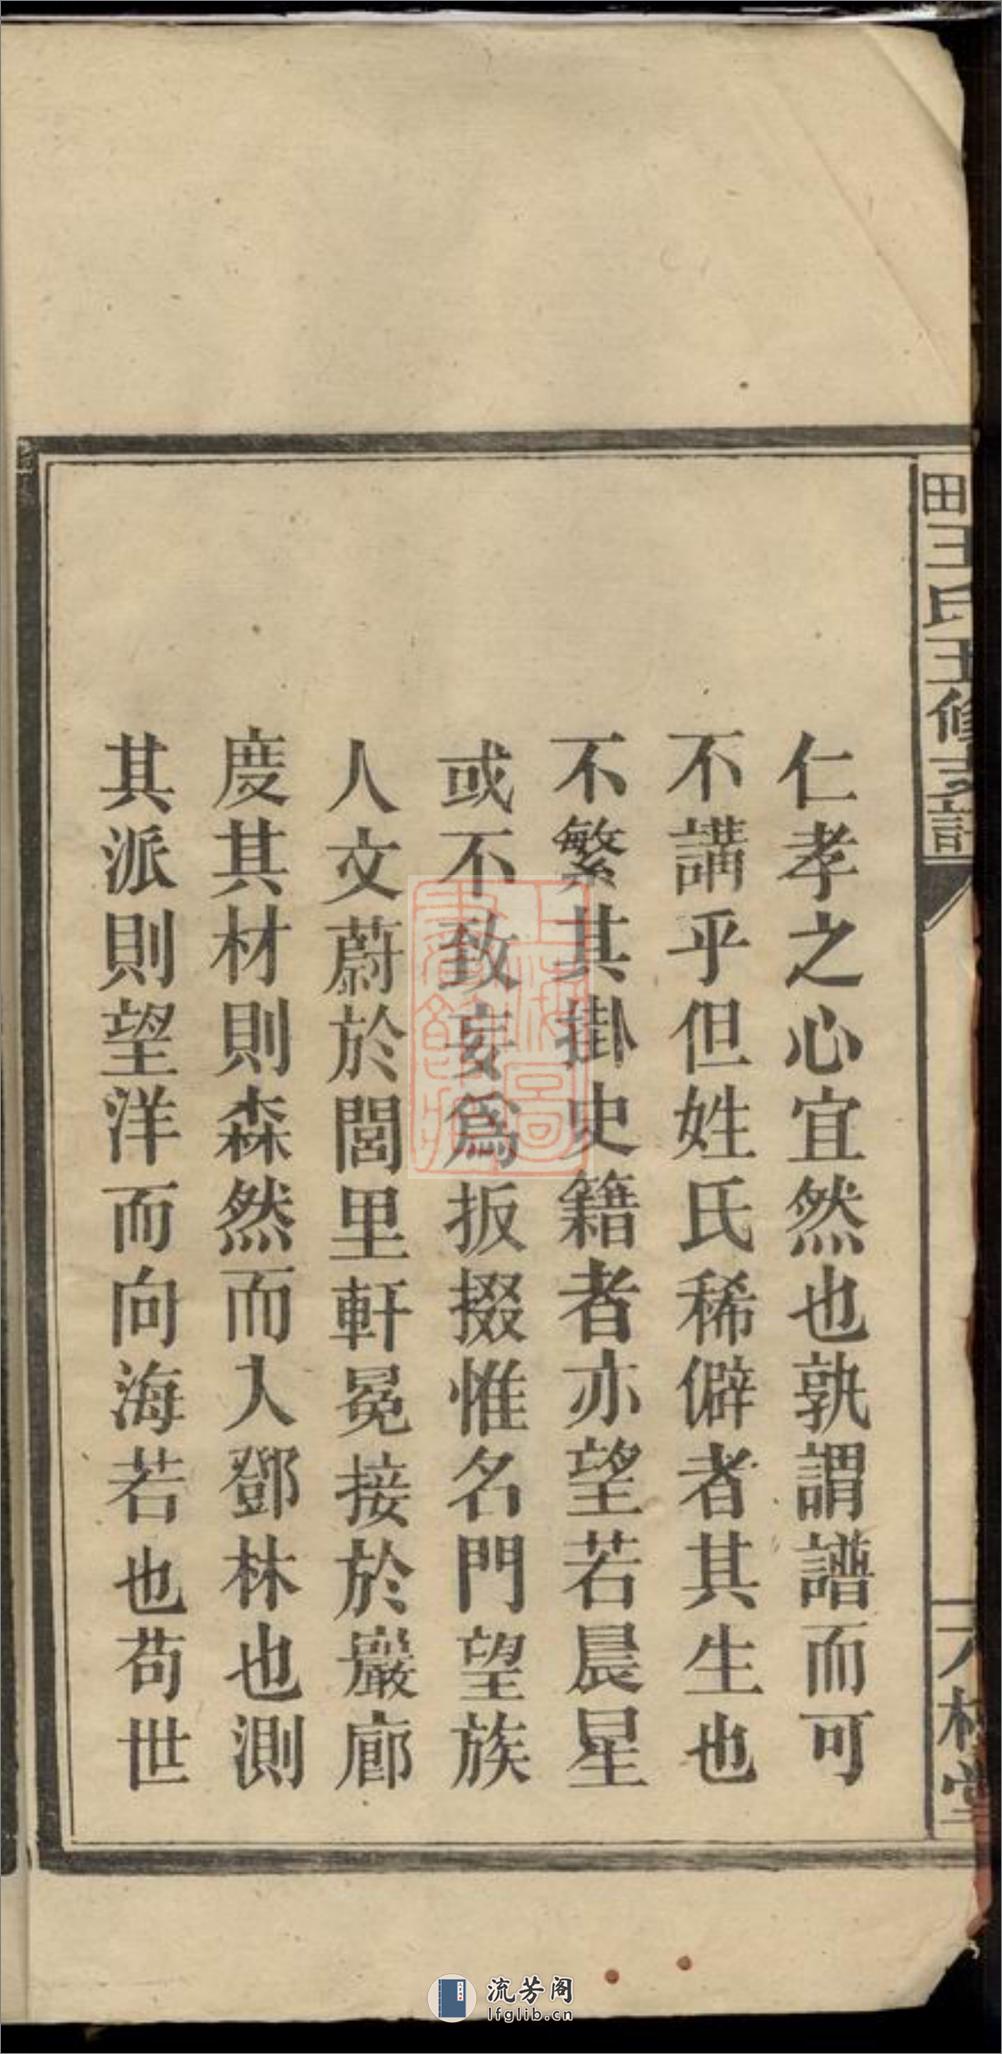 田王氏五修支譜
仁孝之心宜然也孰謂譜而可
不講乎但姓氏稀僻者其生也
不繁其掛史籍者亦望若晨星
或不致妄爲扳掇惟名門望族
人文蔚於閭里軒冕接於巖廊
度其材則森然而入鄧林也測
其派則望洋而向海若也苟世
上海圖書館藏
流芳阁
lfglib.cn